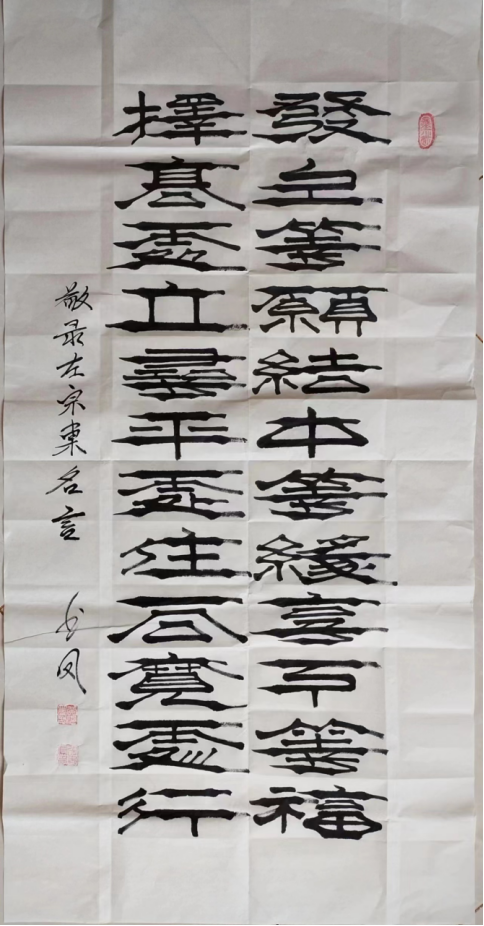 發上等願結中等緣享下等福
擇高處立尋平處住向寬處行
敬录左宗棠名言
凤